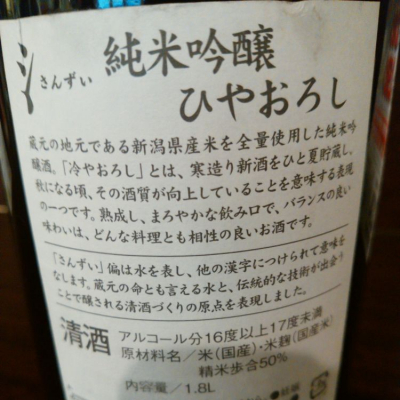 氵さんずい 純米吟醸
ひやおろし
蔵元の地元である新潟県産米を全量使用した純米吟
醸酒。「冷やおろし」とは、寒造り新酒をひと夏貯蔵し、
秋になる頃、その酒質が向上していることを意味する表現
の一つです。熟成し、まろやかな飲み口で、バランスの良い
味わいは、どんな料理とも相性の良いお酒です。
「さんずい」偏は水を表し、他の漢字につけられて意味を
なします。蔵元の命とも言える水と、伝統的な技術が出会う
ことで醸される清酒づくりの原点を表現しました。
清酒 アルコール分16度以上17度未満
原材料名/米(国産)・米麹(国産米)
精米歩合50%
内容量/1.8L